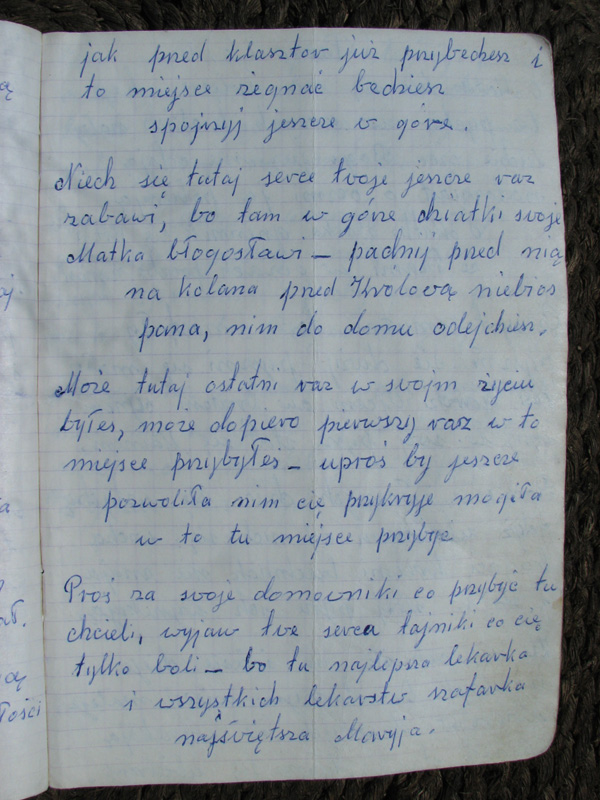 jak przed klasztor już przybedzesz i
to miejsce żegnać bedziesz
spojrzyj jeszcze w góre.
Niech się tutaj serce twoje jeszcze raz
zabawi, bo tam w górze dziatki swoje
Matka błogosławi – padnij przed nią
na kolana przed Królową niebios
pana, nim do domu odejdziesz.
Może tutaj ostatni raz w swojm życiu
byłeś, może dopiero pierwszy raz w to
miejsce przybyłeś – uproś by jeszcze
pozwoliła nim cię przykryje mogiła
w to tu miejsce przybyć
Proś za swoje domowniki co przybyć tu
chcieli, wyjaw twe serca tajniki co cię
tylko boli – bo tu najlepsza lekarka
i wszystkich lekarstw szafarka
najświętsza Maryja.